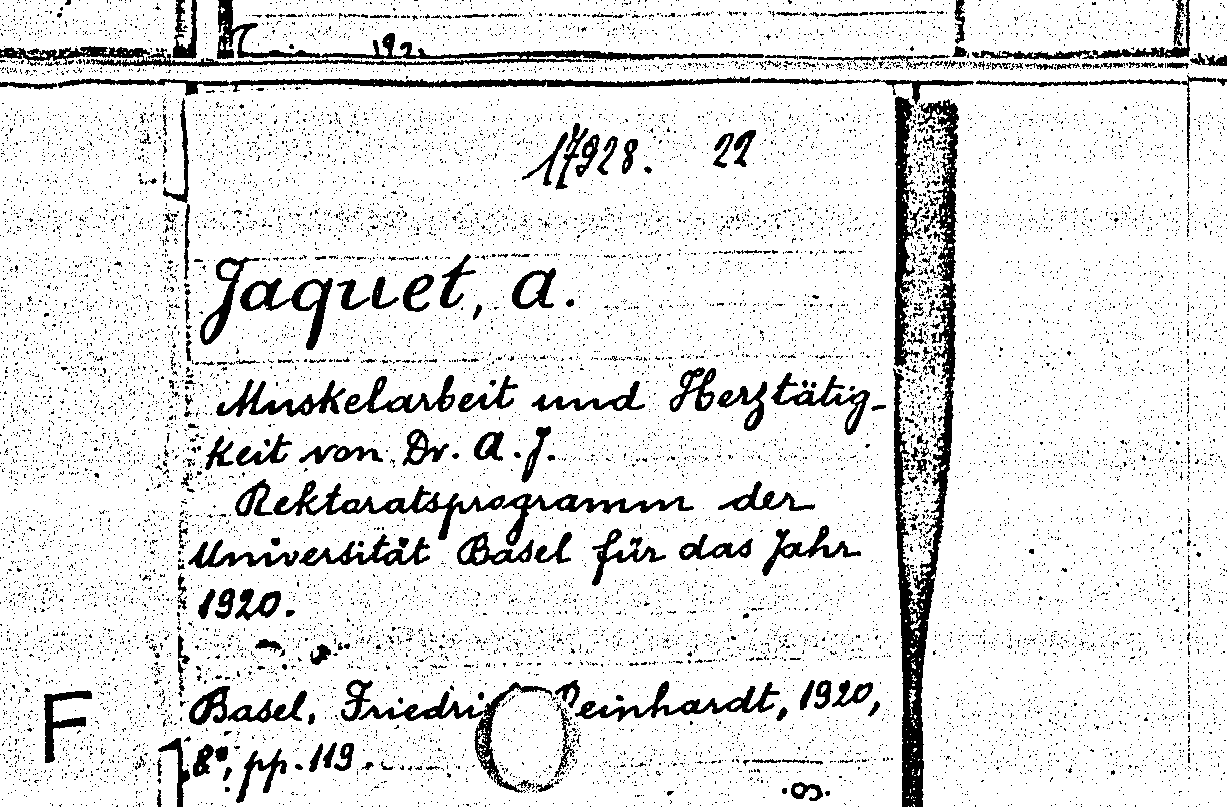 192.
17928. 22
Jaquet, A.
Muskelarbeit und Herztätig-
keit von Dr. A. J.
Rektoratsprogramm der
Universität Basel für das Jahr
1920.
F
Basel, Reinhardt, 1920,
8°, pp. 119.